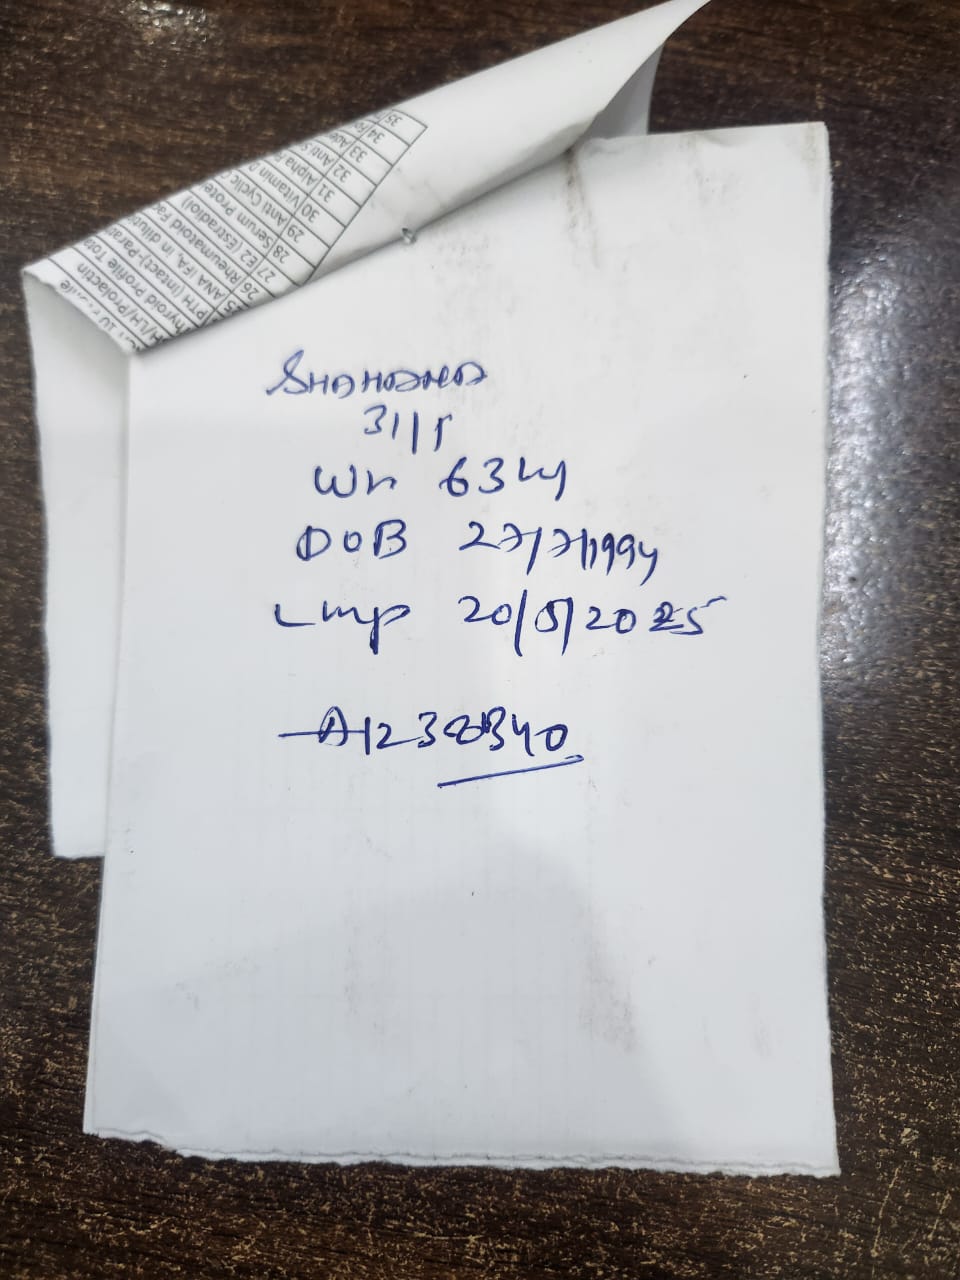 35
34
33
32 Anti S
31 Alpha F
30 Vitamin D
29 Anti Cyclic
28 Serum Prote
27 E2 (Estradiol)
26 Rheumatoid Fa
25 ANA IFA, in dilut
PTH (Intact)-Parat
hyroid Profile Tota
H/LH/Prolactin
SHAHANA
31/F
Wt 63 kg
DOB 27/7/1994
Lmp 20/5/2025
A1238340